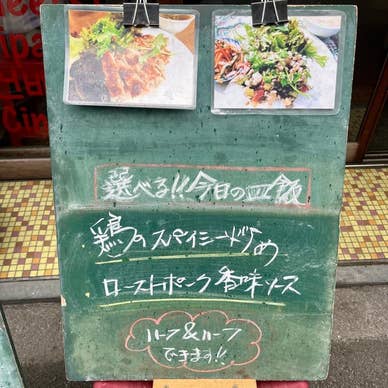 選べる!!今日の皿飯
鶏のスパイシード
め
ローストポーク香味ソース
ハーフ&ハーフ
できます!!